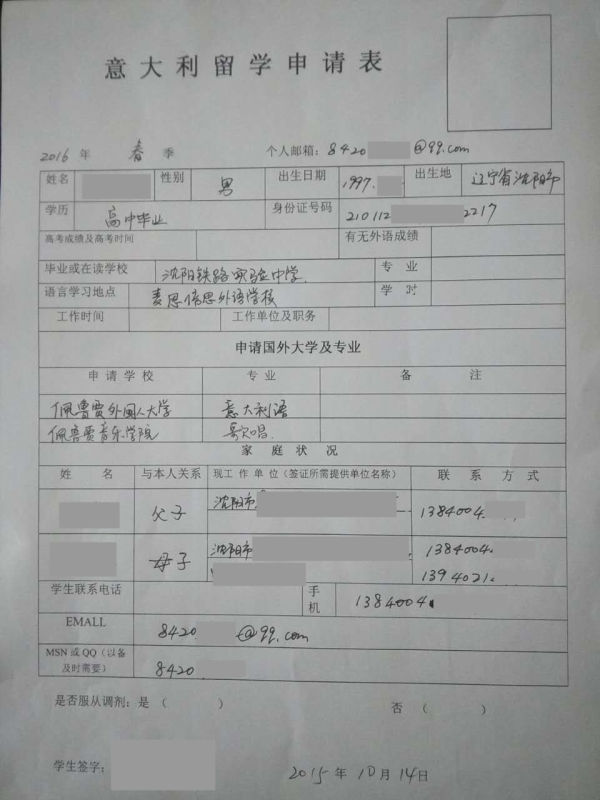 意大利留学申请表
2016 年 春 季 个人邮箱：8420 @qq.com
姓名 性别 男 出生日期 1997. 出生地 辽宁省沈阳市
学历 高中毕业 身份证号码 210112 2217
高考成绩及高考时间 有无外语成绩
毕业或在读学校 沈阳铁路实验中学 专业
语言学习地点 麦思倍思外语学校 学时
工作时间 工作单位及职务
申请国外大学及专业
申请学校 专业 备注
佩鲁贾外国人大学 意大利语
佩鲁贾音乐学院 歌唱
家庭状况
姓名 与本人关系 现工作单位（签证所需提供单位名称） 联系方式
父子 沈阳市 1384004
母子 沈阳市 1384004
1394021
学生联系电话 手机 1384004
EMALL 8420 @qq.com
MSN 或 QQ（以备及时需要） 8420
是否服从调剂：是（ ） 否（ ）
学生签字： 2015 年 10 月 14 日